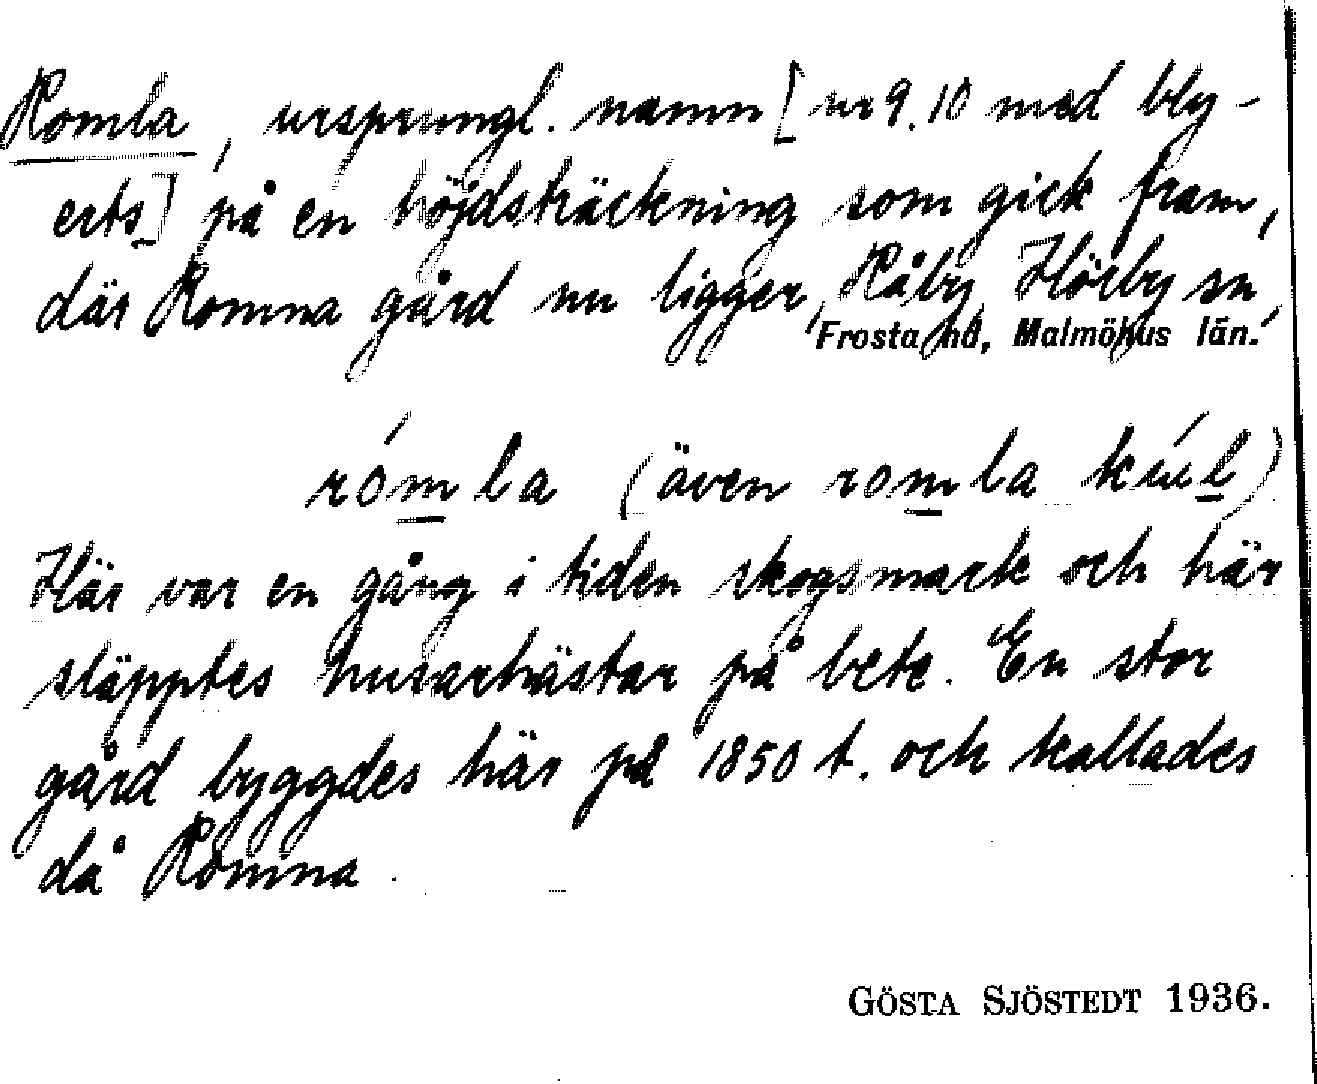 Romla, ursprungl. namn [nr 9.10 med bly-
erts] på en höjdsträckning som gick fram,
där Romna gård nu ligger, Råby, Hörby sn,
Frosta hd, Malmöhus län.
rómla (även romla kúl)
Här var en gång i tiden skogsmark och här
släpptes husarhästar på bete. En stor
gård byggdes här på 1850 t. och kallades
då Romna.
GÖSTA SJÖSTEDT 1936.